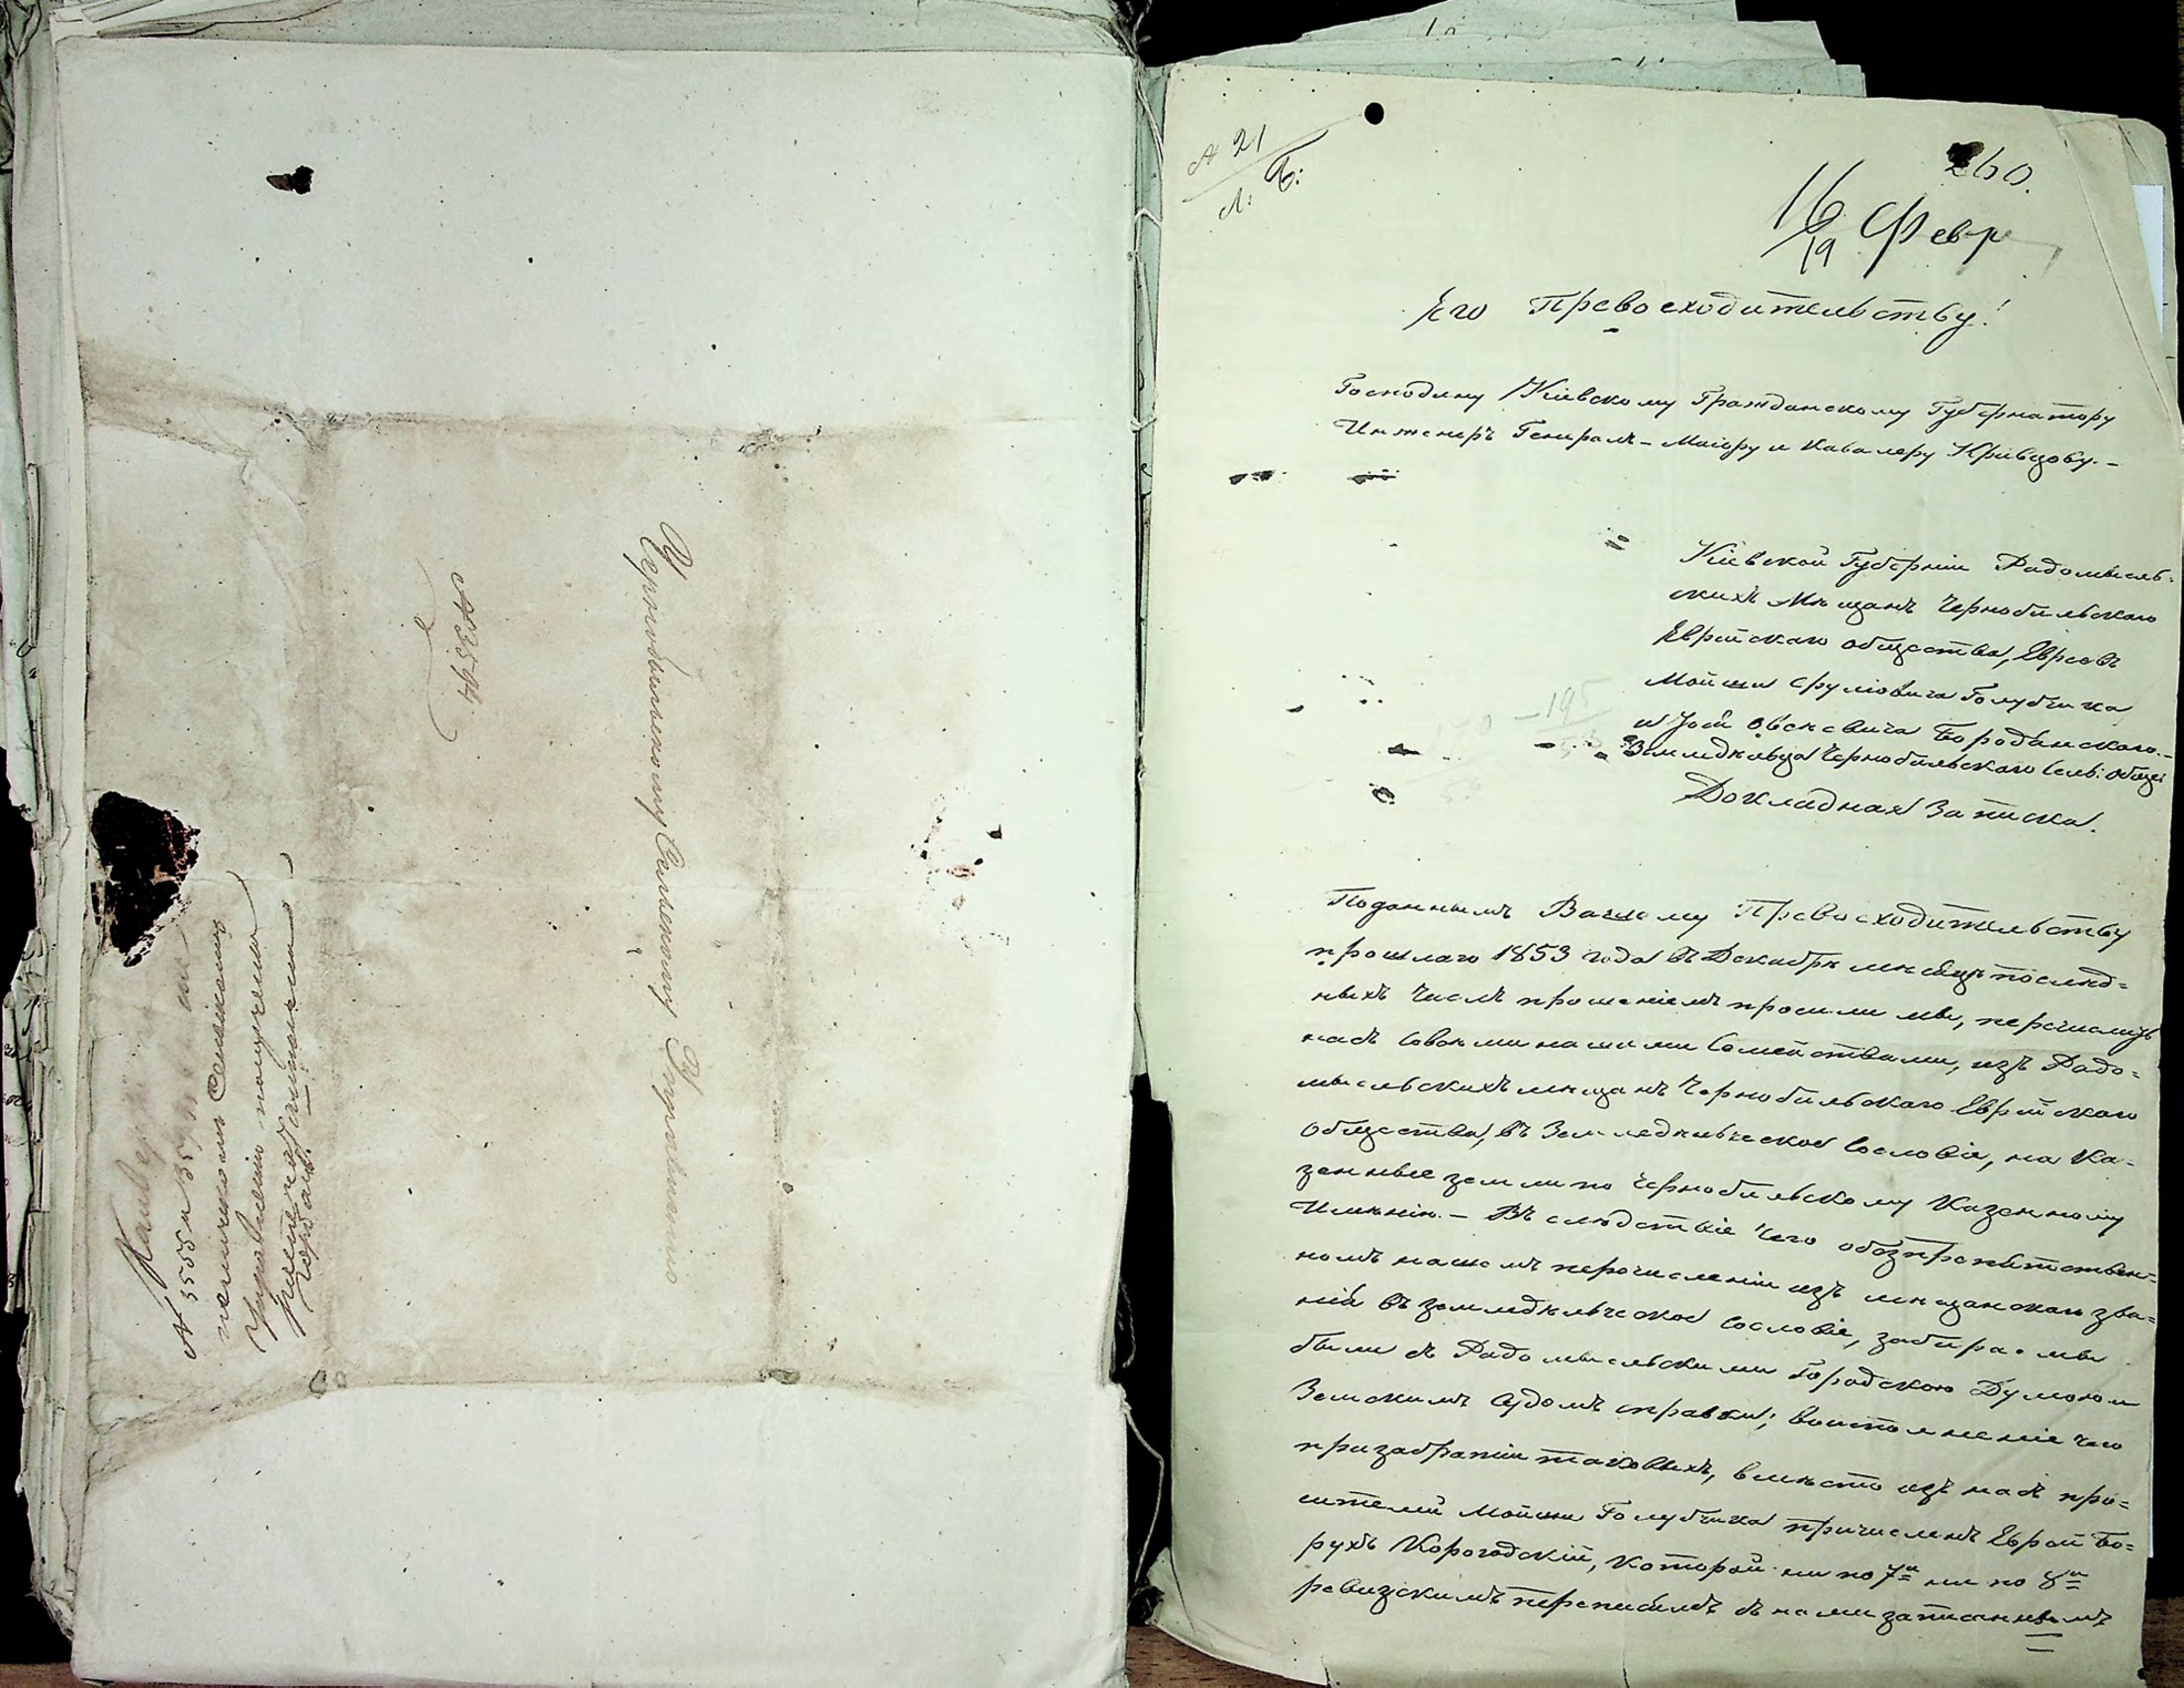 Чернобыльскому Сельскому Управлению
№ 3394
№ 3555 и 357
Сельскому
Управлению получены
№ 21
260.
16/19 Февр
Его Превосходительству!
Господину Кіевскому Гражданскому Губернатору
Инженеръ Генералъ-Маіору и Кавалеру Кривцову.-
Кіевской Губерніи Радомысль-
скихъ Мѣщанъ Чернобыльскаго
Еврейскаго общества, Евреевъ
Мойши Сруліовича Голубчика
и Овсеевича Бородянскаго.-
Земледѣльца Чернобыльскаго Сель: обще:
Докладная Записка.
Поданнымъ Вашему Превосходительству
прошлаго 1853 года въ Декабрѣ мѣсяцѣ послѣд=
ныхъ числъ прошеніемъ просили мы, перечислить
насъ совсѣми нашими Семействами, изъ Радо=
мысльскихъ мѣщанъ Чернобыльскаго Еврейскаго
общества, въ Земледѣльческое Сословіе, на Ка=
зенные земли по Чернобыльскому Казенному
Имѣнію.- Въ слюдствіе чего обезпрепятствен=
номъ нашемъ перечисленіи изъ мѣщанскаго зва=
нія въ земледѣльческое Сословіе, забира. мы
были съ Радомысльскими Городскою Думою и
Земскимъ Судомъ справки; воисполненіе чего
призабраніи таковыхъ, вмѣсто изъ насъ про=
сителей Мойши Голубчика причисленъ Еврей Бо=
рухъ Корогодскій, которой ни по 7й ни по 8й
ревизскимъ переписямъ съ нами записаннымъ